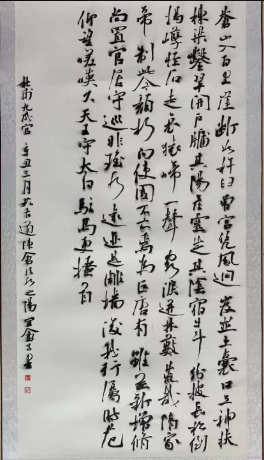 蒼山入百里崖斷如杵臼曾宮憑風迥岌嶪土囊口立神扶
棟梁鑿翠開戶牖其陽產靈芝其陰宿牛斗紛披長松倒
揭嶭怪石走哀猿啼一聲客淚迸林藪荒哉隋家
帝制此今頹朽向使國不亡焉為巨唐有雖無新增修
尚置官居守巡非瑤水遠迹是雕牆後我行屬時危
仰望嗟嘆久天王守太白駐馬更搔首
杜甫九成宮辛丑三月